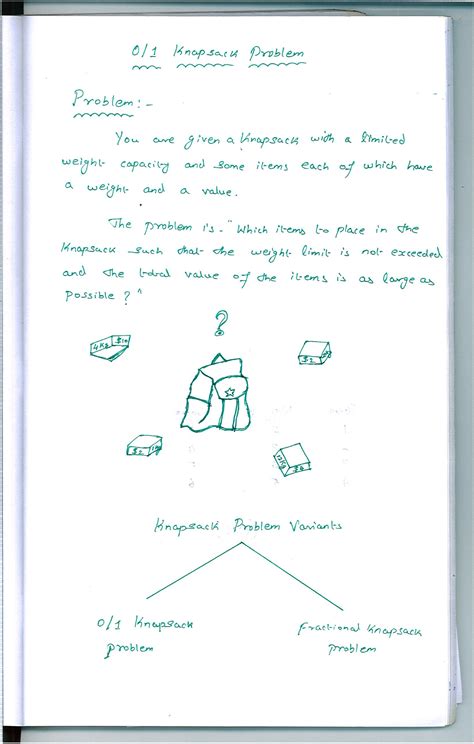 0/1 Knapsack Problem
Problem:-
You are given a Knapsack with a limited
weight capacity and some items each of which have
a weight and a value.
The problem is- "Which items to place in the
Knapsack such that the weight limit is not exceeded
and the total value of the items is as large as
possible ?"
?
4Kg $10
$2
$2
$6
Knapsack Problem Variants
0/1 Knapsack
Problem
Fractional Knapsack
Problem